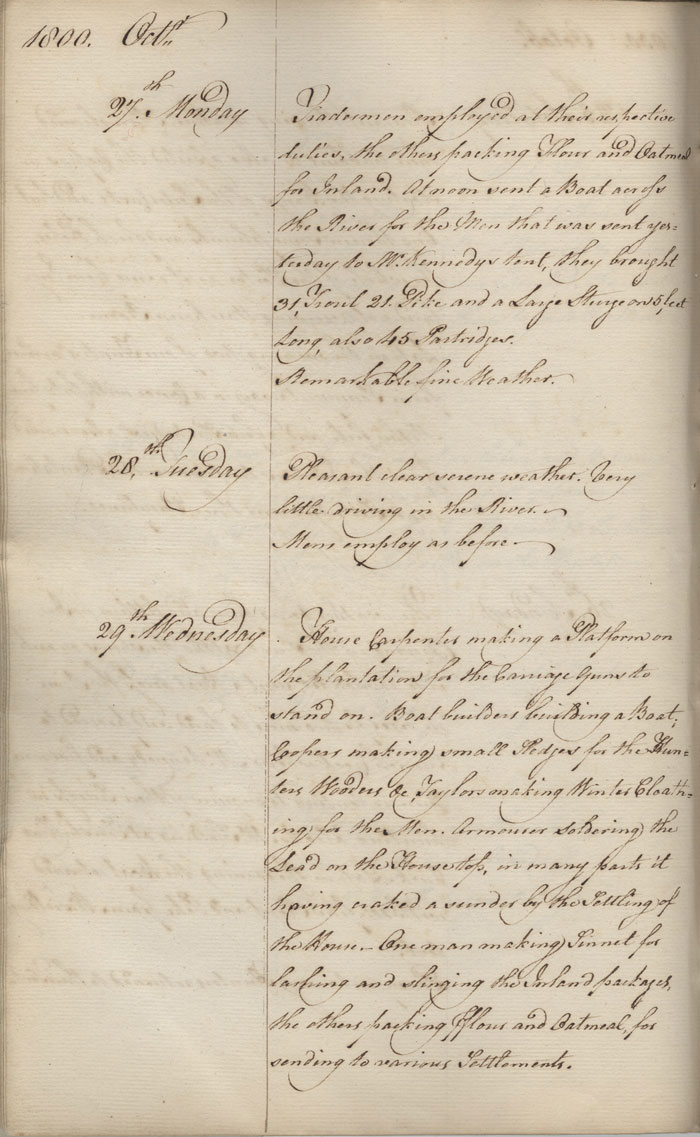 1800. Octr
27.th Monday
Tradesmen employed at their respective
duties, the others packing Flour and Oatmeal
for Inland. At noon sent a Boat across
the River for the Men that was sent yes=
terday to Mr. Kennedys tent, they brought
31, Trout 21. Pike and a Large Sturgeon 5, feet
Long, also 45 Partridges.
Remarkable fine Weather.
28,th Tuesday
Pleasant clear serene weather. Very
little driving in the River.
Mens employ as before
29th Wednesday
House Carpenter making a Platform on
the plantation for the Carriage Guns to
stand on. Boat builders building a Boat;
Coopers making small Sledges for the Hun=
ters Wooders &c, Taylors making Winter Cloath=
ing for the Men. Armourer soldering the
Lead on the House top, in many parts it
having craked a sunder by the Settling of
the House. – One man making Sinnet for
lashing and slinging the Inland packages,
the others packing Flour and Oatmeal, for
sending to various Settlements.